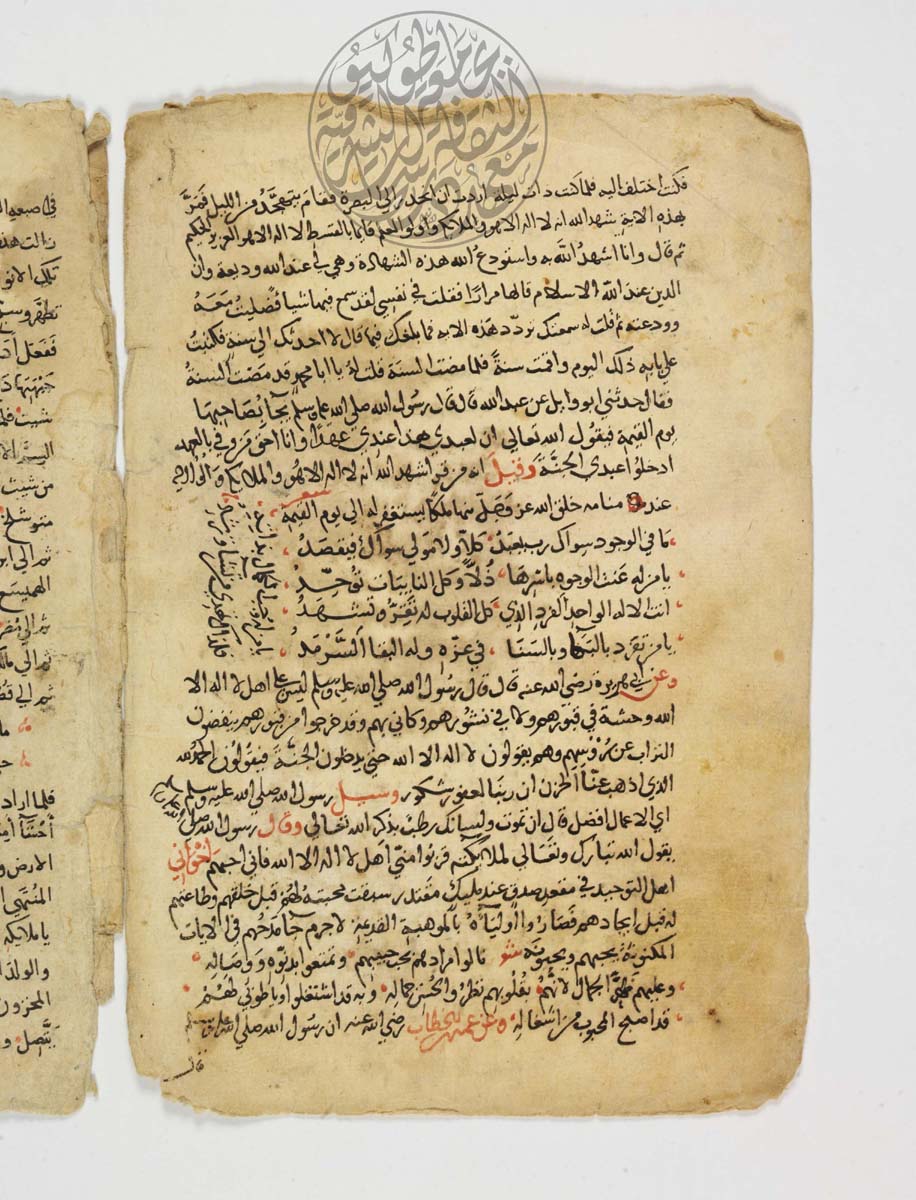 فكنت اختلف اليه فلما كنت ذات ليلة اردت ان انحدر الى البصرة فقام يتهجد من الليل فمر
بهذه الاية شهد الله انه لا اله الا هو والملايكة واولو العلم قايما بالقسط لا اله الا هو العزيز الحكيم
ثم قال وانا اشهد الله به واستودع الله هذه الشهادة وهي لي عند الله وديعة وان
الدين عند الله الاسلام قالها مرارا فقلت في نفسي لقد سمع فيها شيا فصليت معه
وودعته ثم قلت له سمعتك تردد هذه الاية فما بلغك فيها قال لا احدثك الي سنة فكتبت
علي بابه ذلك اليوم واقمت سنة فلما مضت السنة قلت له يا ابا محمد قد مضت السنة
فقال حدثني ابو وايل عن عبد الله قال قال رسول الله صلي الله عليه وسلم يجآ بصاحبها
يوم القيمة فيقول الله تعالي ان لعبدي هذا عندي عهدا وانا احق من وفي بالعهد
ادخلوا عبدي الجنة وقيل انه من قرا شهد الله انه لا اله الا هو والملايكة
عند منامه خلق الله عز وجل منها ملكا يستغفر له الي يوم القيمة شعر
ما في الوجود سواك رب يعبد كلا ولا مولي سواك فيقصد
يا من له عنت الوجوه باسرها ذلا وكل الناييات توحد
انت الاله الواحد الفرد الذي كل القلوب له تقر وتشهد
يا من تفرد بالبها وبالسنا في عزه وله البقا السرمد
وعن ابي هريرة رضي الله عنه قال قال رسول الله صلي الله عليه وسلم ليس علي اهل لا اله الا
الله وحشة في قبورهم ولا في نشورهم وكاني بهم وقد خرجوا من قبورهم ينفضون
التراب عن رؤوسهم وهم يقولون لا اله الا الله حتي يدخلون الجنة فيقولون الحمد لله
الذي اذهب عنا الحزن ان ربنا لغفور شكور وسيل رسول الله صلي الله عليه وسلم
اي الاعمال افضل قال ان تموت ولسانك رطب بذكر الله تعالي وقال رسول الله صلي
يقول الله تبارك وتعالي لملايكته قربوا مني اهل لا اله الا الله فاني احبهم اخواني
اهل التوحيد في مقعد صدق عند مليك مقتدر سبقت محبته لهم قبل خلقهم وطاعتهم
له قبل ايجادهم فصاروا اولياؤه بالموهبة القديمة لا جرم جآ مدحهم في الايات
المكنونة يحبهم ويحبونه
وعليهم الجمال بقلوبهم نظروا لحسن جماله وبه قد اشتغلوا وياطوبي لهم
قد اصبح المحبوب من اشغاله وعن عمر بن الخطاب رضي الله عنه ان رسول الله صلي الله عليه وسلم
قال